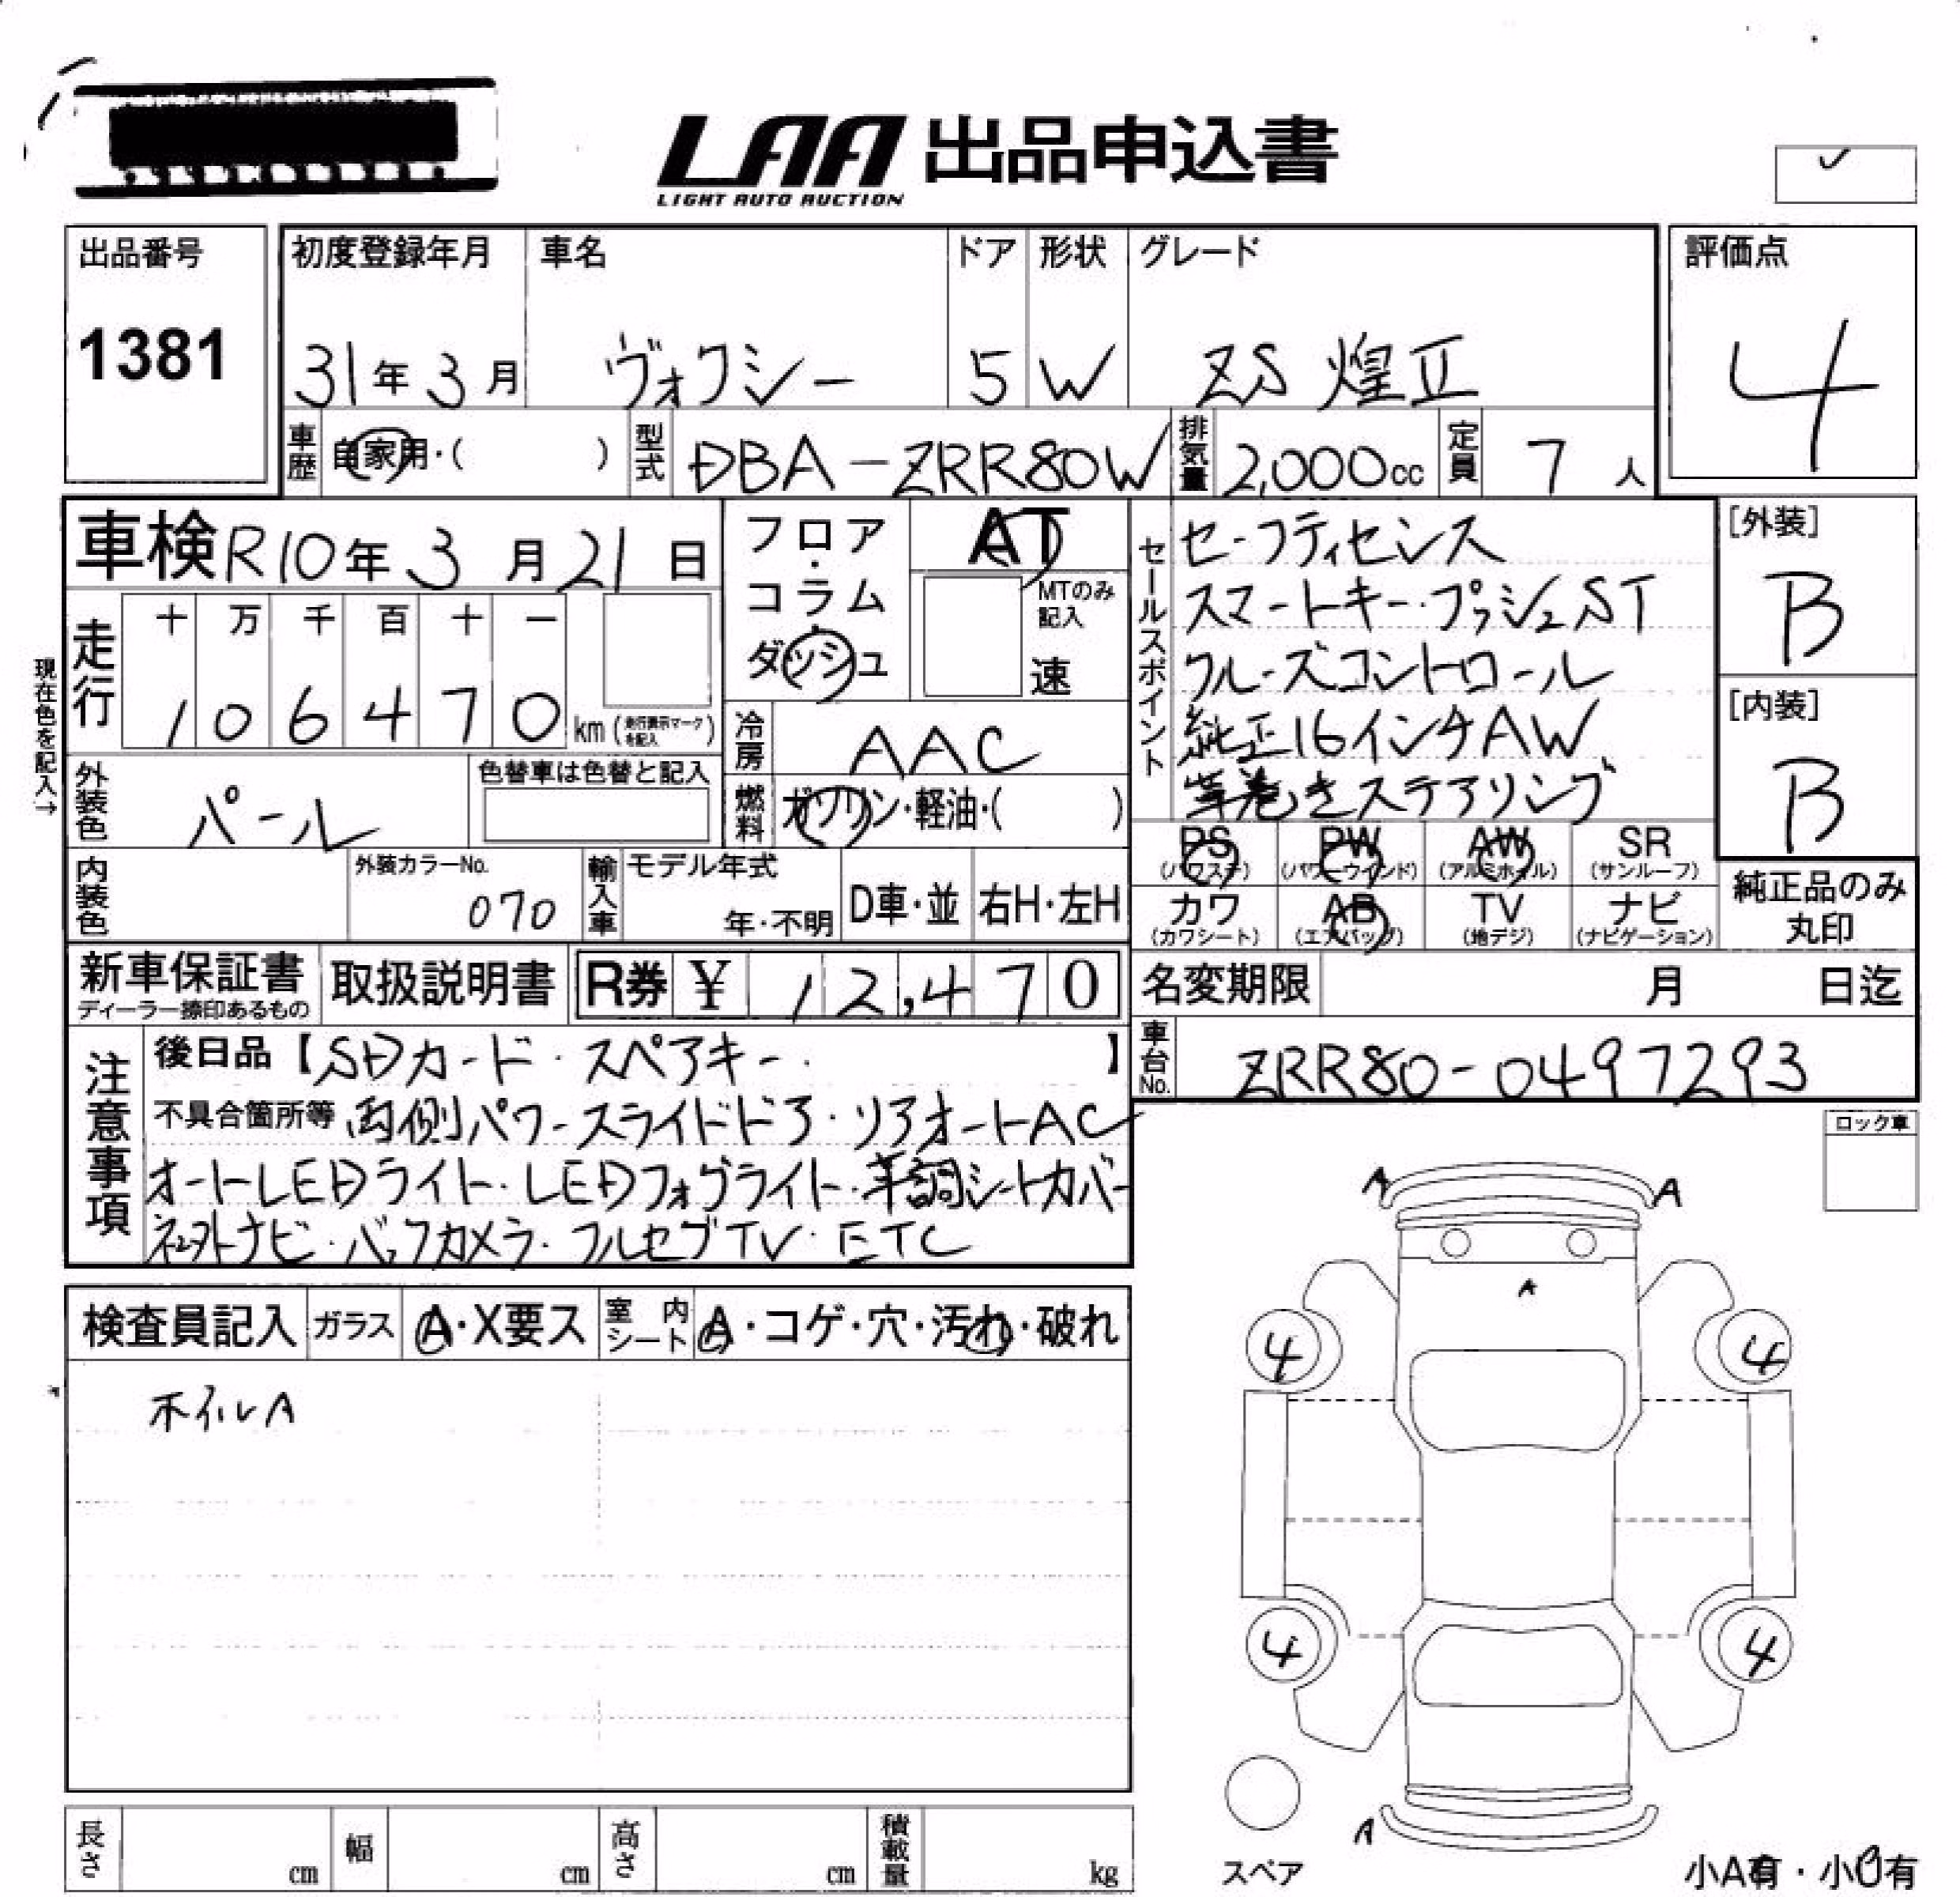 LAA 出品申込書
LIGHT AUTO AUCTION
出品番号
1381
初度登録年月
31年3月
車名
ヴォクシー
ドア
5
形状
W
グレード
ZS 煌Ⅱ
評価点
4
車歴
自家用・( )
型式
DBA-ZRR80W
排気量
2,000cc
定員
7人
車検 R10年3月21日
フロア・コラム・ダッシュ
AT
MTのみ記入
速
セールスポイント
セーフティセンス
スマートキー・プッシュST
クルーズコントロール
純正16インチAW
革巻きステアリング
[外装]
B
[内装]
B
現在色を記入→
走行
十 万 千 百 十 一
1 0 6 4 7 0 km (走行表示マークを記入)
冷房
AAC
外装色
パール
色替車は色替と記入
燃料
ガソリン・軽油・( )
PS (パワステ)
PW (パワーウインド)
AW (アルミホイル)
SR (サンルーフ)
カワ (カワシート)
AB (エアバッグ)
TV (地デジ)
ナビ (ナビゲーション)
純正品のみ丸印
内装色
外装カラーNo.
070
輸入車
モデル年式
年・不明
D車・並
右H・左H
新車保証書
ディーラー捺印あるもの
取扱説明書
R券 ¥ 12,470
名変期限 月 日迄
車台No.
ZRR80-0497293
注意事項
後日品【SDカード・スペアキー・】
不具合箇所等 両側パワースライドドア・リアオートAC
オートLEDライト・LEDフォグライト・革調シートカバー
社外ナビ・バックカメラ・フルセグTV・ETC
ロック車
検査員記入
ガラス A・X要ス
室内シート A・コゲ・穴・汚れ・破れ
ホイルA
A A
A
4 4
4 4
A
スペア
小A有・小U有
長さ cm
幅 cm
高さ cm
積載量 kg